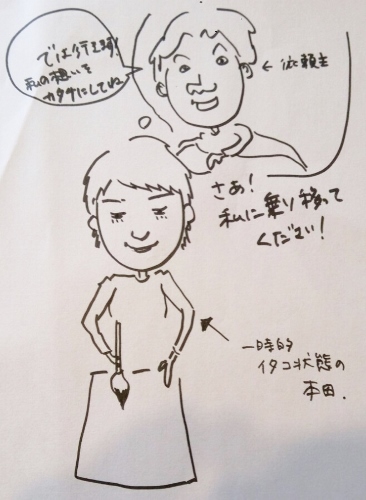 では行きます!
私の想いを
カタチにしてね
←依頼主
さあ!
私に乗り移って
ください!
一時的
イタコ状態の
本田.